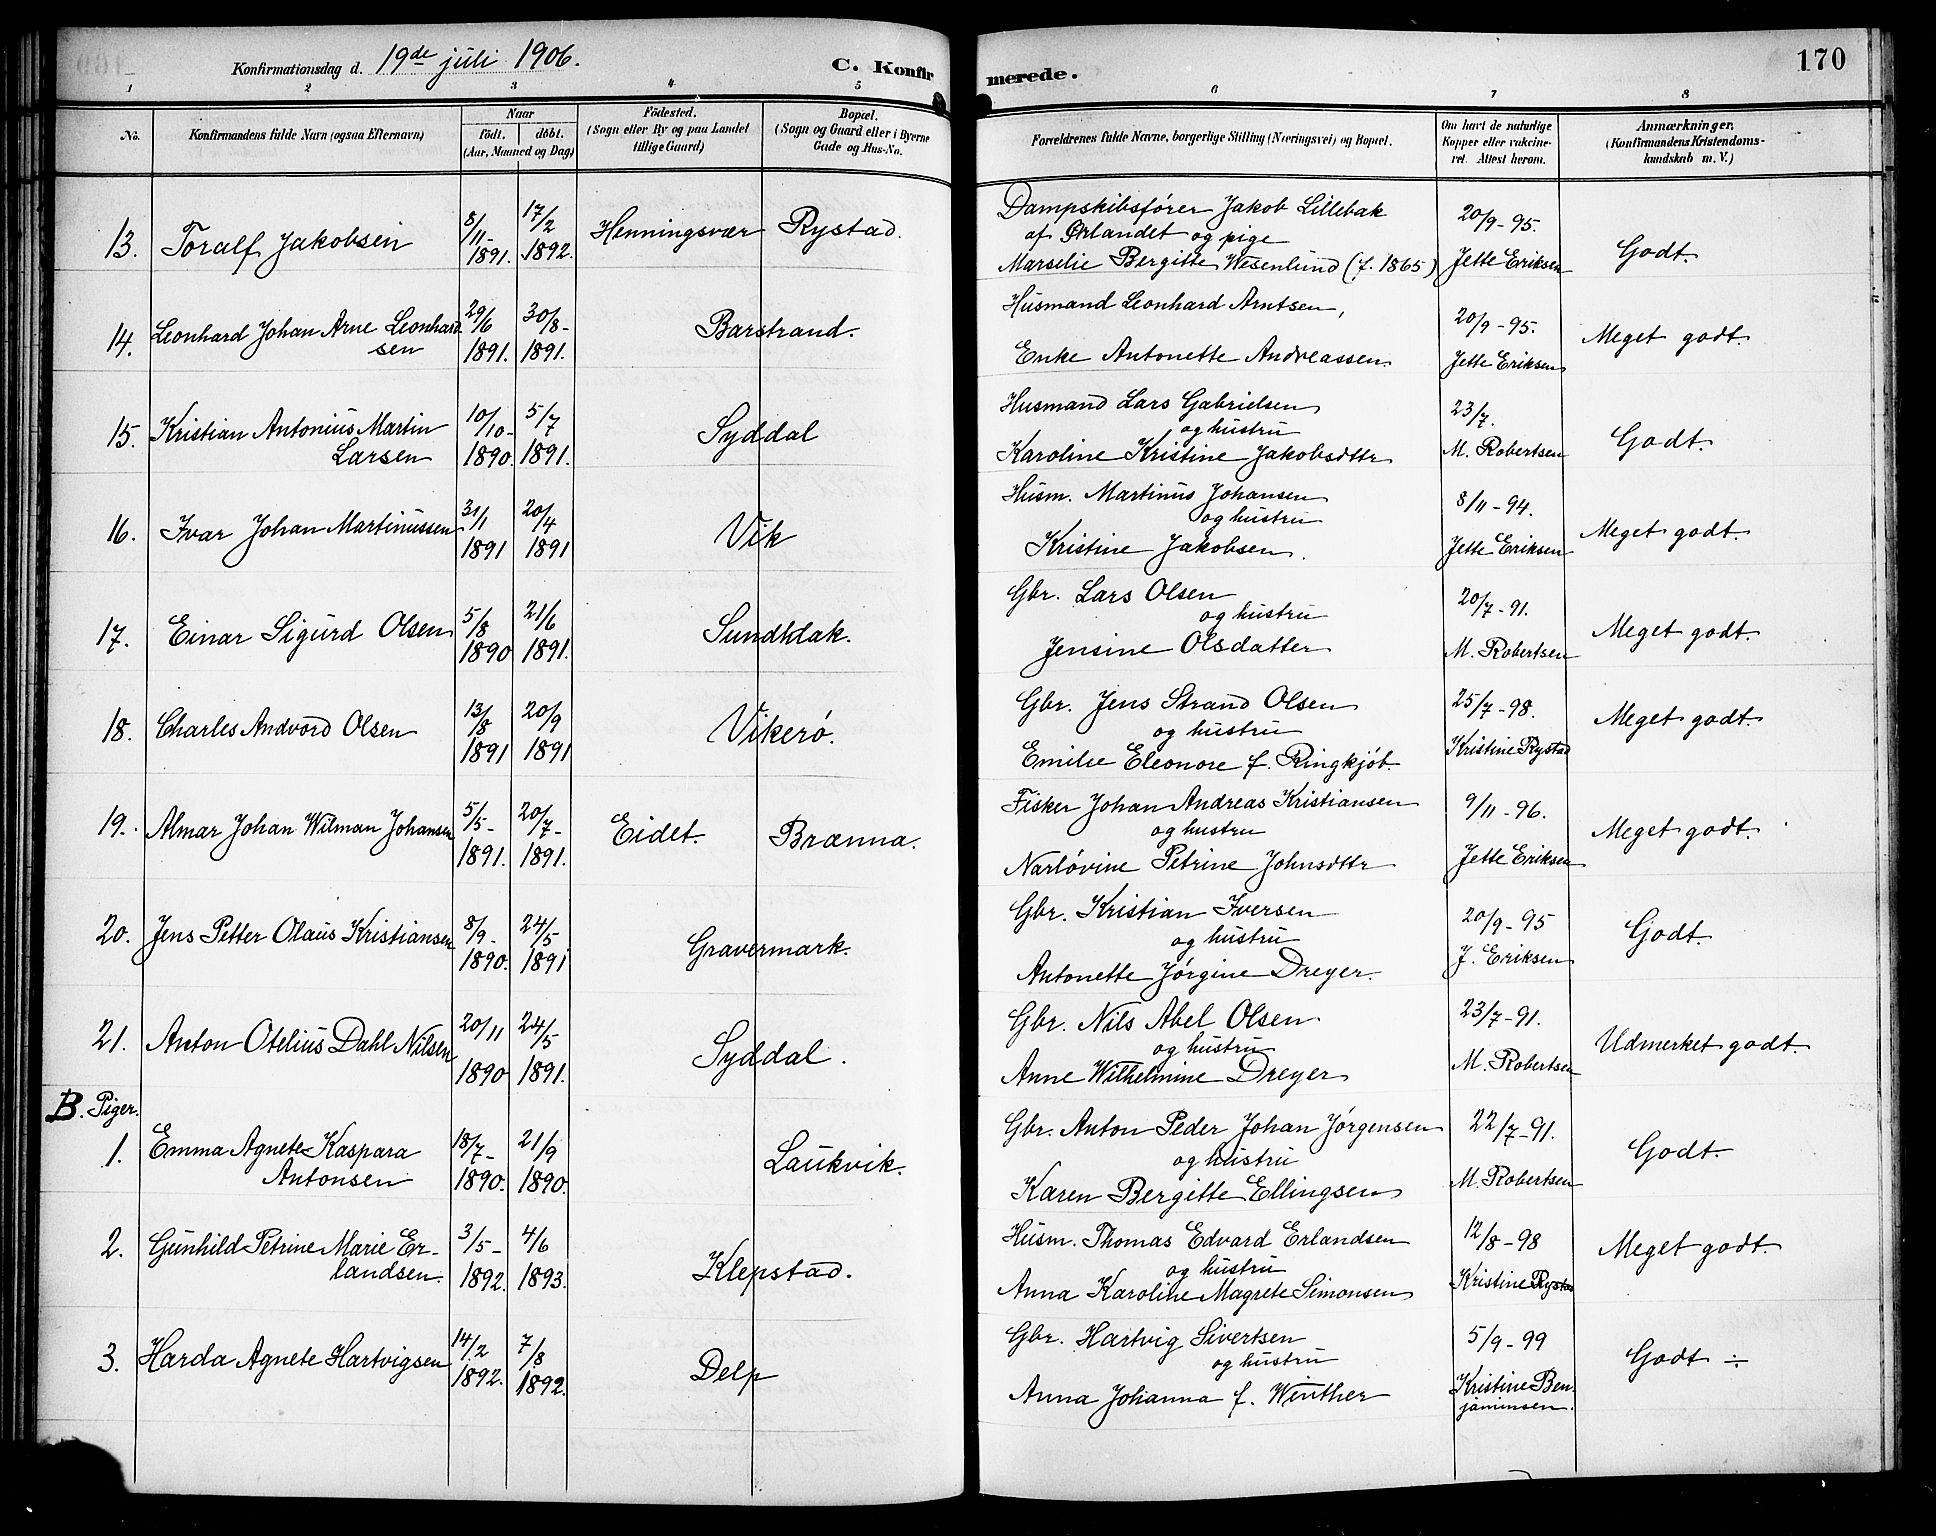 Konfirmationsdag d. 19de juli 1906.
C. Konfirmerede.
170
1 2 3 4 5 6 7 8
No.
Konfirmandens fulde Navn (ogsaa Efternavn)
Naar
födt. döbt.
(Aar, Maaned og Dag)
Födested.
(Sogn eller By og paa Landet
tillige Gaard)
Bopæl.
(Sogn og Gaard eller i Byerne
Gade og Hus-No.
Forældrenes fulde Navne, borgerlige Stilling (Næringsvei) og Bopæl.
Om havt de naturlige
Kopper eller vakcine-
ret. Attest herom.
Anmærkninger.
(Konfirmandens Kristendoms-
kundskab m. V.)
13. Toralf Jakobsen 8/11- 1891. 17/2 1892. Henningsvær Rystad.
Dampskibsfører Jakob Lillebak
af Ørlandet og pige
Marselie Bergitte Wesenlund (f. 1865)
20/9-95.
Jette Eriksen
Godt.
14. Leonhard Johan Arne Leonhard-
sen 29/6 1891. 30/8- 1891. Barstrand.
Husmand Leonhard Arntsen,
Enke Antonette Andreassen.
20/9-95.
Jette Eriksen
Meget godt.
15. Kristian Antonius Martin
Larsen 10/10- 1890. 5/7 1891. Syddal
Husmand Lars Gabrielsen
og hustru
Karoline Kristine Jakobsdttr
23/7.
M. Robertsen
Godt.
16. Ivar Johan Martinussen 31/1 1891 20/4 1891 Vik
Husm. Martinus Johansen
og hustru
Kristine Jakobsen.
8/11-94.
Jette Eriksen
Meget godt.
17. Einar Sigurd Olsen 5/8 1890 21/6 1891. Sundklak.
Gbr. Lars Olsen
og hustru
Jensine Olsdatter
20/7-91.
M. Robertsen
Meget godt.
18. Charles Andvord Olsen 13/8 1891 20/9 1891 Vikerø.
Gbr. Jens Strand Olsen
og hustru
Emilie Eleonore f. Ringkjøb.
25/7-98.
Kristine Rystad
Meget godt.
19. Almar Johan Wilman Johansen 5/5- 1891. 20/7- 1891. Eidet. Brænna.
Fisker Johan Andreas Kristiansen
og hustru
Narløvine Petrine Johnsdttr
9/11-96.
Jette Eriksen
Meget godt.
20. Jens Petter Olaus Kristiansen 8/9- 1890. 24/5 1891 Gravermark.
Gbr. Kristian Iversen
og hustru
Antonette Jørgine Dreyer.
20/9-95
J. Eriksen
Godt.
21. Anton Otelius Dahl Nilsen 20/11 1890 24/5 1891. Syddal.
Gbr. Nils Abel Olsen
og hustru
Anne Wilhelmine Dreyer
23/7-91.
M. Robertsen
Udmerket godt.
B. Piger.
1. Emma Agnete Kaspara
Antonsen 18/7- 1890. 21/9 1890. Laukvik.
Gbr. Anton Peder Johan Jørgensen
og hustru
Karen Bergitte Ellingsen
22/7-91.
M. Robertsen
Godt.
2. Gunhild Petrine Marie Er-
landsen. 3/5- 1892. 4/6 1893. Klepstad.
Husm. Thomas Edvard Erlandsen
og hustru
Anna Karoline Magrete Simonsen
12/8-98
Kristine Rystad
Meget godt.
3. Harda Agnete Hartvigsen 14/2 1892. 7/8 1892. Delp
Gbr. Hartvig Sivertsen
og hustru
Anna Johanna f. Winther
5/9-99
Kristine Ben-
jaminsen.
Godt ÷